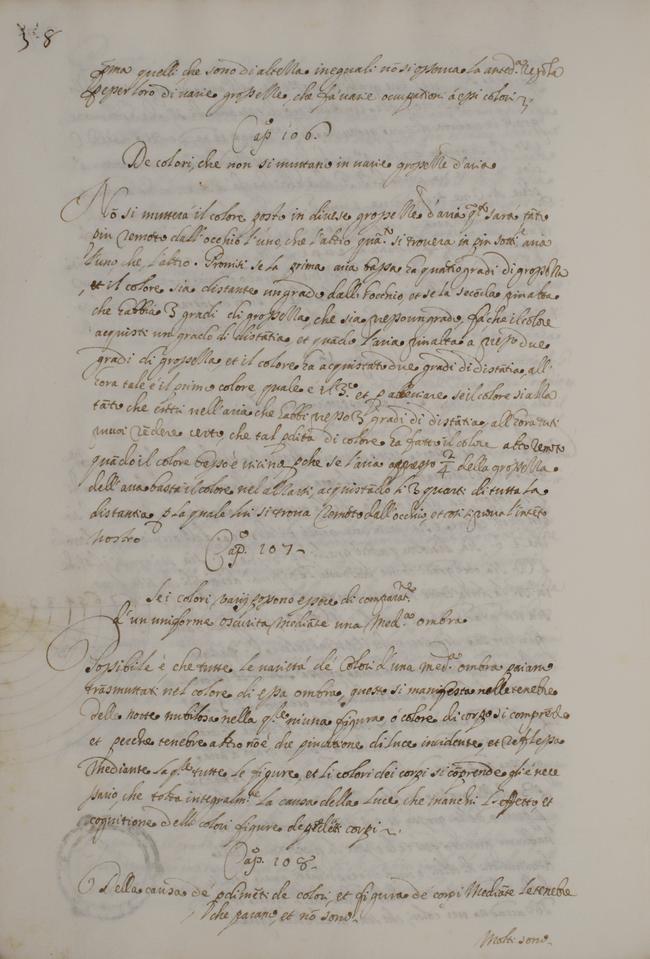 38
ma quelli che sono di altezza inequali nõ si osserva la anted.ª Regola
per loro di varie grossezze, che fà varie occupationi à essi colori
Cap.º 106.
De colori, che non si muttano in varie grossezze d'aria
Nõ si mutterà il colore posto in diverse grossezze d'aria qñ.º sarà tãto
piu remoto dall'occhio l'uno, che l'altro quã.º si trovera in piu sott.e aria
l'uno che l'altro. Provasi se la prima aria bassa ha quattro gradi di grossezza
et il colore sia distante un grado dall'occhio, et se la secõda piu alta
che habbia 3 gradi di grossezza, che sia perso un grado, fà che il colore
acquisti un grado di distãtia, et quãdo l'aria piu alta a perso due
gradi di grossezza et il colore ha acquistato due gradi di distãtia, all'
hora tale è il primo colore quale è il 3.º et p abbreviare se il colore s'alla
tãto che entri nell'aria che habbi perso 3 gradi di distãtia, all'hora tu ti
puoi rẽdere certo, che tal perdita di colore ha fatto il colore alto remoto
quãdo il colore basso è vicino pche se l'aria
dell'aria bassa il colore nel alzarsi, acquistãdo li 3 quarti di tutta la
distantia p la quale lui si trova remoto dall'occhio, et così si prova l'intẽto
nostro
Cap.º 107.
Se i colori varij possono essere di
d'un uniforme oscurita mediãte una med.ª ombra
Possibile è che tutte le varietà de' colori d'una med.ª ombra paiano
trasmuttati nel colore di essa ombra, questo si manifesta nelle tenebre
delle notte nubilosa nella qle niuna figura ò colore di corpo si comprẽde
et perche tenebre altro nõ è che privatione di luce incidente, et reflessa
mediante la qle tutte le figure, et li colori dei corpi si cõprende, gli è nece
ssario che tolta integralm.te la causa della luce, che manchi l'effetto, et
cognitione delli colori figure de pdetti corpi.
Cap.º 108.
Della causa de pdimẽti de colori, et figura de corpi mediãte le tenebre
che paiano, et nõ sono.
Molti sono.